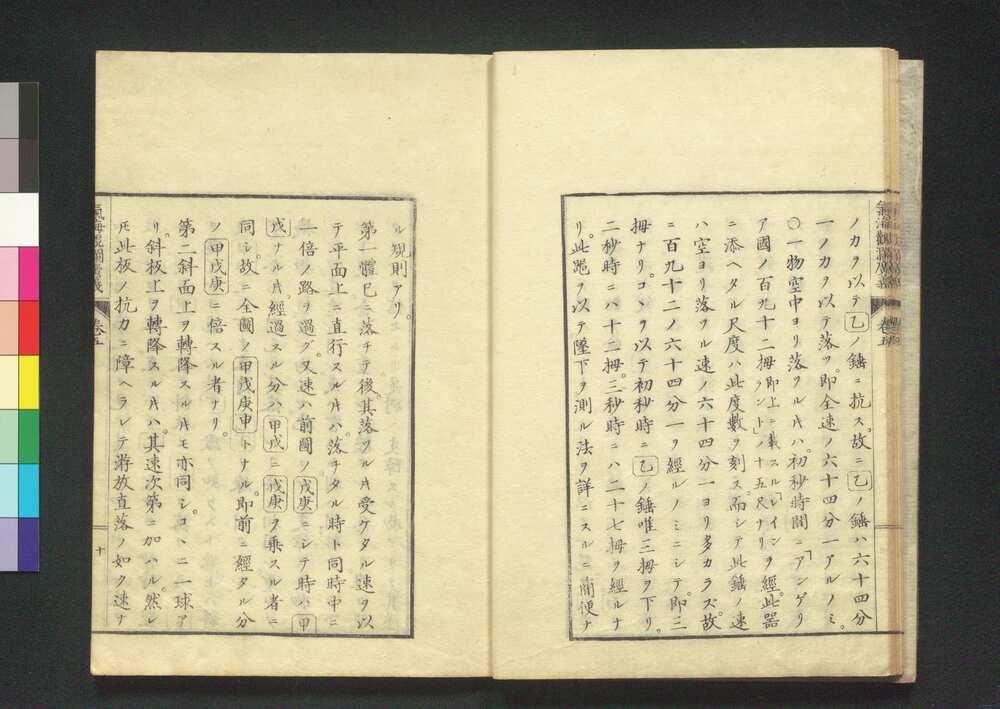 氣海觀瀾廣義
卷五
ノカヲ以テ乙ノ錘ニ抗ス。故ニ乙ノ錘ハ六十四分
一ノカヲ以テ落ツ。即全速ノ六十四分一アルノミ。
○一物空中ヨリ落ツル𪜈ハ。初秒時間ニ「アンゲリ
ア國ノ百九十二拇即上ニ載スル「レインラント」ノ十五尺ナリヲ經。此器
ニ添ヘタル尺度ハ此度數ヲ刻ス。而シテ此錘ノ速
ハ空ヨリ落ツル速ノ六十四分一ヨリ多カラズ。故
ニ百九十二ノ六十四分一ヲ經ルノミニシテ。即三
拇ナリ。コレヲ以テ初秒時ニ乙ノ錘唯三拇ヲ下リ。
二秒時ニハ十二拇。三秒時ニハ二十七拇ヲ經ルナ
リ。此噐ヲ以テ墜下ヲ測ル法ヲ詳ニスルニ簡便ナ
ル規則アリ。
第一體已ニ落チテ後。其落ツル𪜈受ケタル速ヲ以
テ平面上ニ直行スル𪜈ハ。落チタル時ト同時中ニ
一倍ノ路ヲ過グ。又速ハ前圖ノ戊庚ニシテ時ハ甲
戊ナル𪜈。經過スル分ハ甲戊ニ戊庚ヲ乘スル者ニ
同シ。故ニ全圖ノ甲戊庚申トナル。即前ニ經タル分
ノ甲戊庚ニ倍スル者ナリ。
第二斜面上ヲ轉降スル𪜈モ亦同シ。コヽニ一球ア
リ。斜板上ヲ轉降スル𪜈ハ。其速次第ニ加ハル。然レ
𪜈此板ノ抗力ニ障ヘラレテ游放直落ノ如ク速ナ
氣海觀瀾廣義
卷五
十